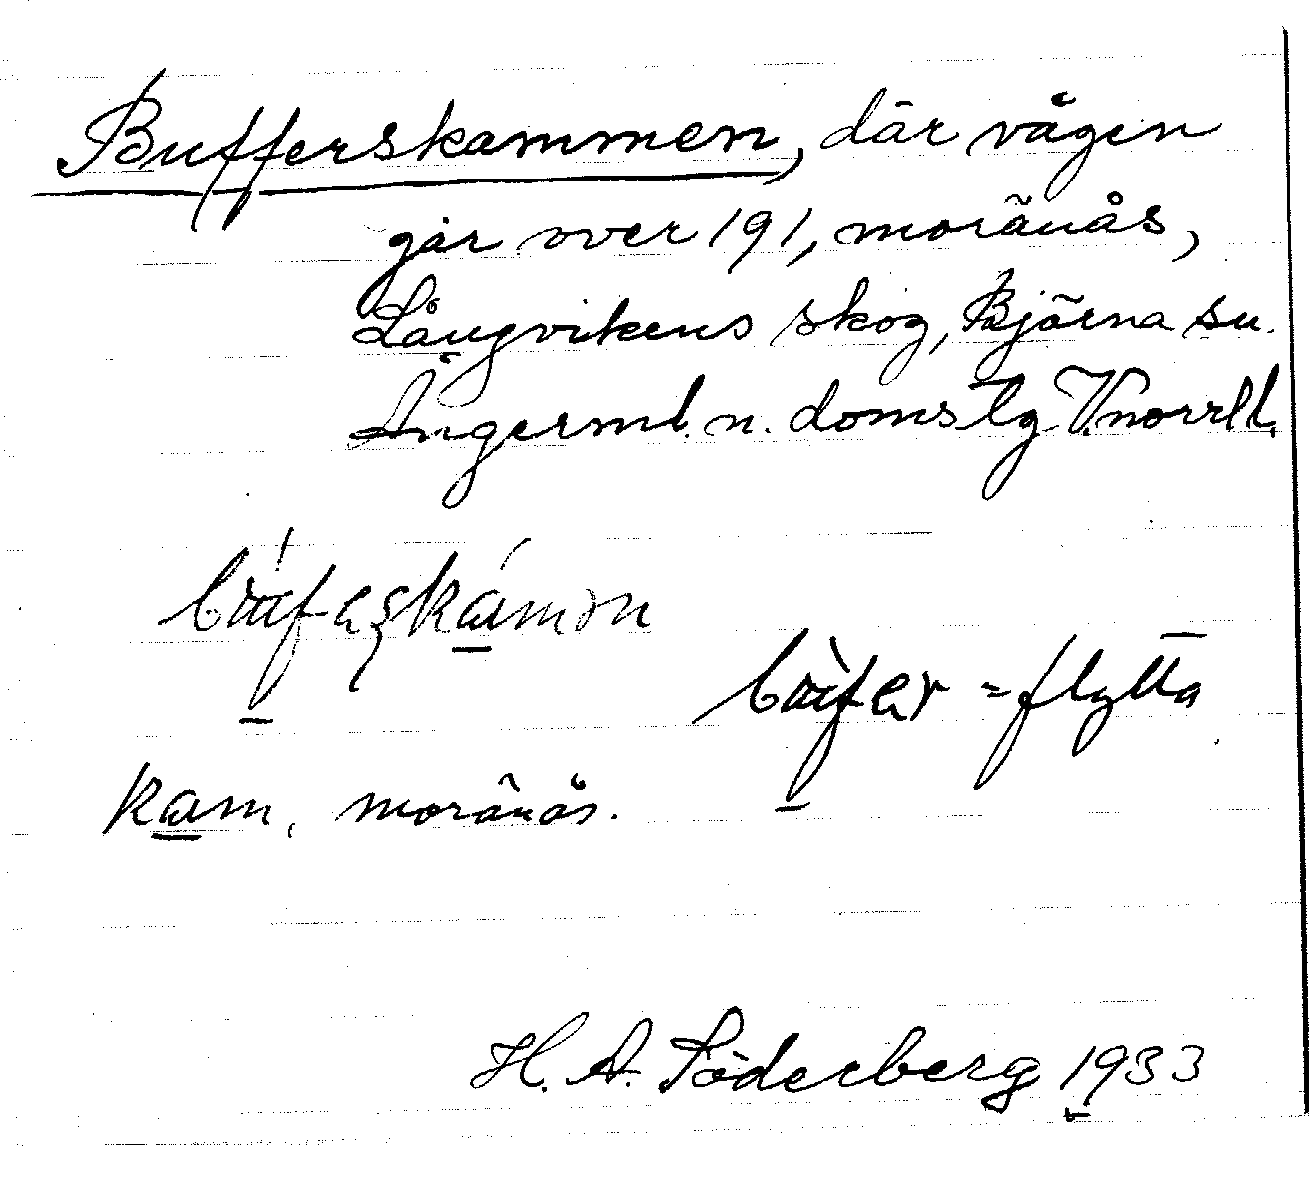 Bufferskammen, där vägen
går över 191, moränås,
Långvikens skog, Björna sn.
Ångerml. n. domslg V.norrl.l.
kam, moränås.
= flytta
H. A. Söderberg 1933